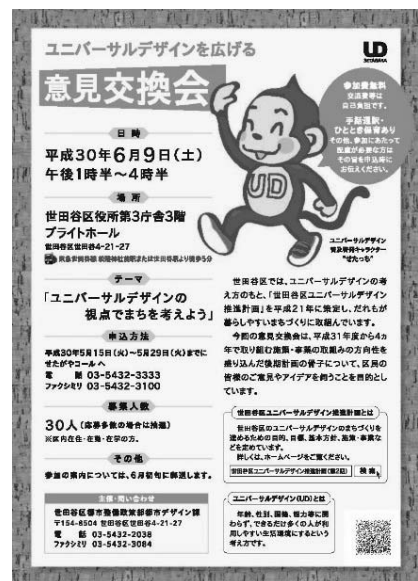 ユニバーサルデザインを広げる
意見交換会
UD
SETAGAYA
参加費無料
交通費等は
自己負担です。
手話通訳・
ひととき保育あり
その他、参加にあたって
配慮が必要な方は
その旨を申込時に
お伝えください。
日時
平成30年6月9日(土)
午後1時半～4時半
場所
世田谷区役所第3庁舎3階
ブライトホール
世田谷区世田谷4-21-27
テーマ
「ユニバーサルデザインの
視点でまちを考えよう」
申込方法
平成30年5月15日(火)～5月29日(火)までに
せたがやコールへ
電話 03-5432-3333
ファクシミリ 03-5432-3100
募集人数
30人(応募多数の場合は抽選)
※区内在住・在勤・在学の方。
その他
参加の案内については、6月初旬に郵送します。
主催・問い合わせ
世田谷区都市整備政策部都市デザイン課
〒154-8504 世田谷区世田谷4-21-27
電話 03-5432-2038
ファクシミリ 03-5432-3084
UD
ユニバーサルデザイン
普及啓発キャラクター
“せたっち”
世田谷区では、ユニバーサルデザインの考
え方のもと、「世田谷区ユニバーサルデザイン
推進計画」を平成21年に策定し、だれもが
暮らしやすいまちづくりに取組んでいます。
今回の意見交換会は、平成31年度から4ヵ
年で取り組む施策・事業の取組みの方向性を
盛り込んだ後期計画の骨子について、区民の
皆様のご意見やアイデアを伺うことを目的とし
ています。
世田谷区ユニバーサルデザイン推進計画とは
世田谷区のユニバーサルデザインのまちづくりを
進めるための目的、目標、基本方針、施策・事業な
どを定めています。
詳しくは、ホームページをご覧ください。
世田谷区ユニバーサルデザイン推進計画(第2期)
検索
ユニバーサルデザイン(UD)とは
年齢、性別、国籍、能力等に関
わらず、できるだけ多くの人が利
用しやすい生活環境にするという
考え方です。